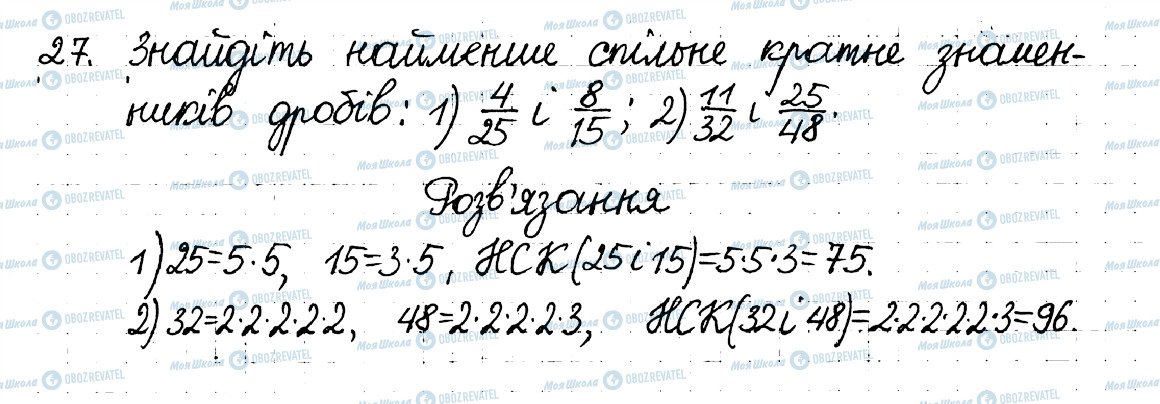 27. Знайдіть найменше спільне кратне знамен-
ників дробів: 1) 4/25 і 8/15; 2) 11/32 і 25/48.
Розв'язання
1) 25=5·5, 15=3·5, НСК(25 і 15)=5·5·3=75.
2) 32=2·2·2·2·2, 48=2·2·2·2·3, НСК(32 і 48)=2·2·2·2·2·3=96.